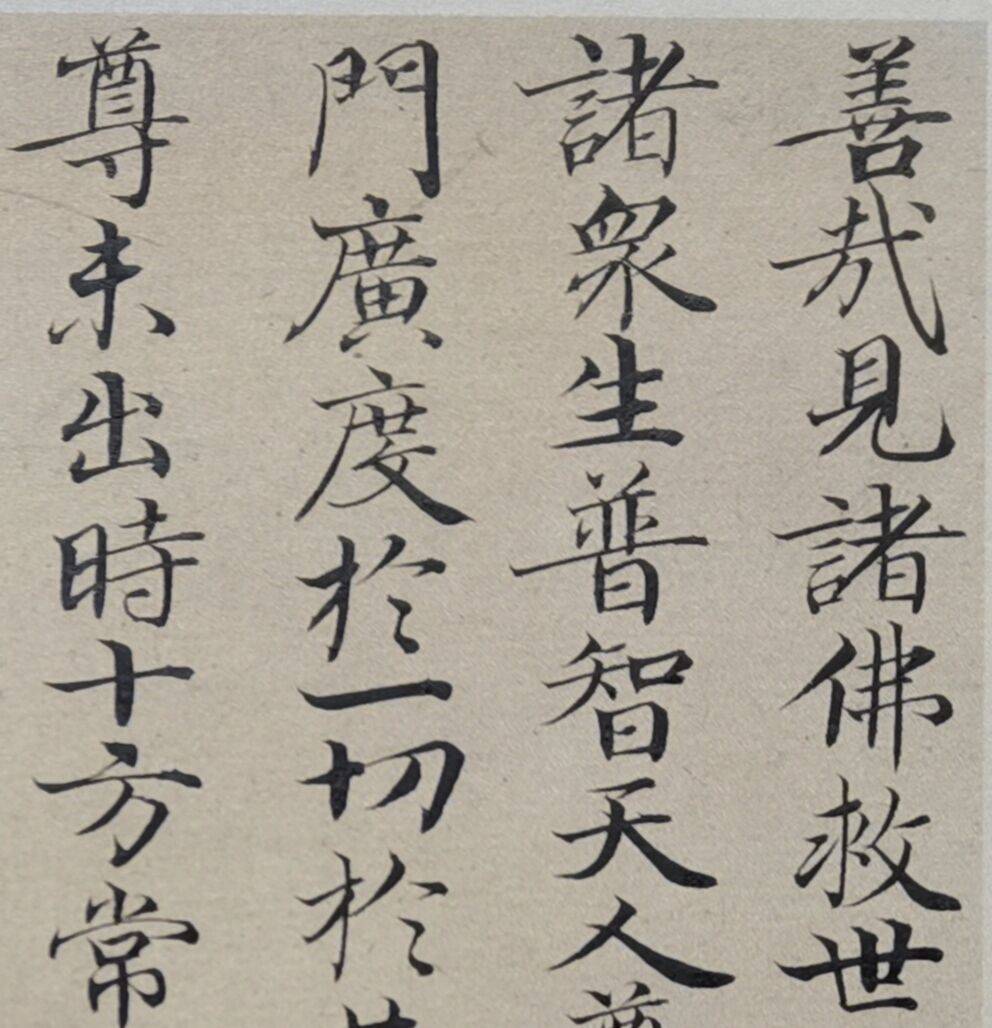 善哉見諸佛救世
諸眾生普智天人尊
門廣度於一切於
尊未出時十方常